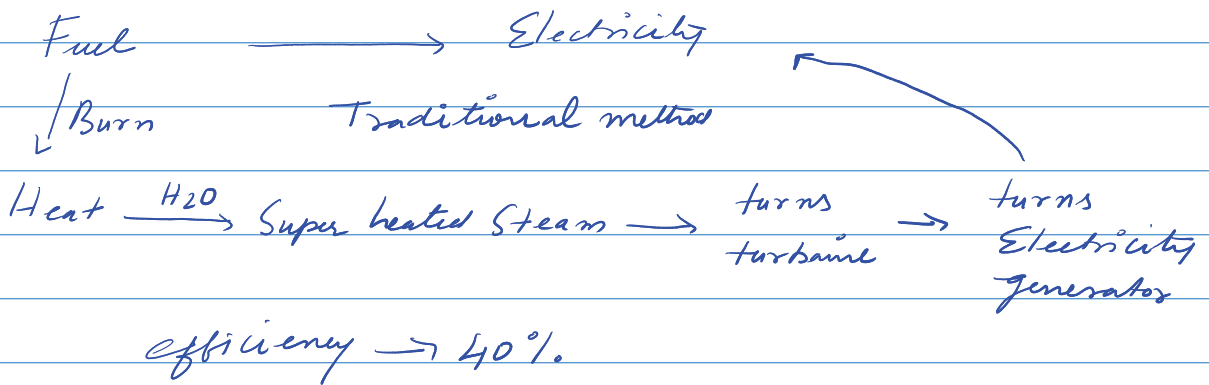 Fuel → Electricity
Burn Traditional method
Heat H2O → Super heated Steam → turns → turns
turbaine Electricity
generator
efficiency → 40%.